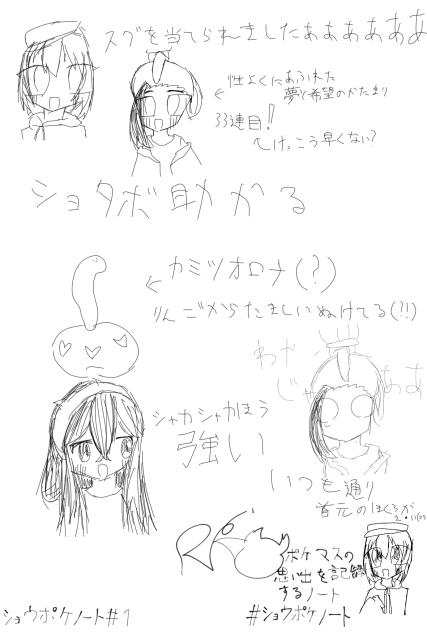 スグを当てられましたあああああ
←性よくにあふれた
夢と希望のかたまり
33連目!!
↖けっこう早くない?
ショタボ助かる
←カミツオロチ(?)
りんごからたましいぬけてる(?!)
わぁ
じゃ ああ
シャカシャカほう
強い
いつも通り
首元のほくろが
ポケマスの
思い出を記録
するノート
ショウポケノート#1
#ショウポケノート